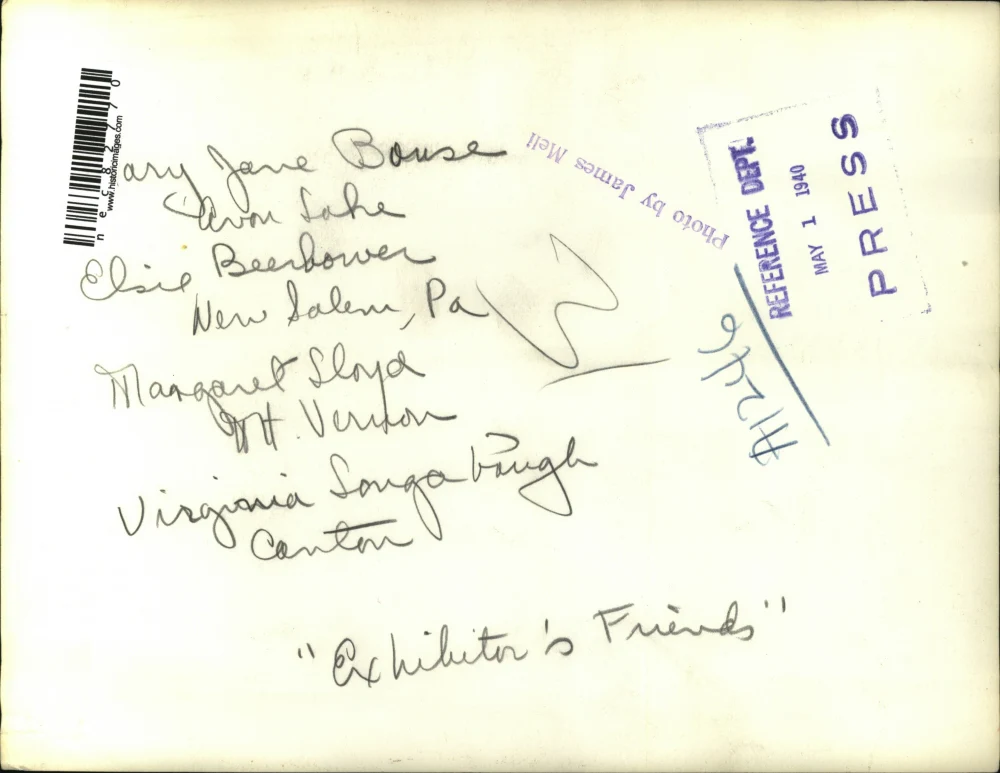 ary Jane Bouse
Avon Lake
Elsie Beerbower
New Salem, Pa
Margaret Lloyd
Mt. Vernon
Virginia Longa Vaugh
Canton
"Exhibitor's Friends"
Photo by James Mell
REFERENCE DEPT.
MAY 1 1940
PRESS
www.historicimages.com